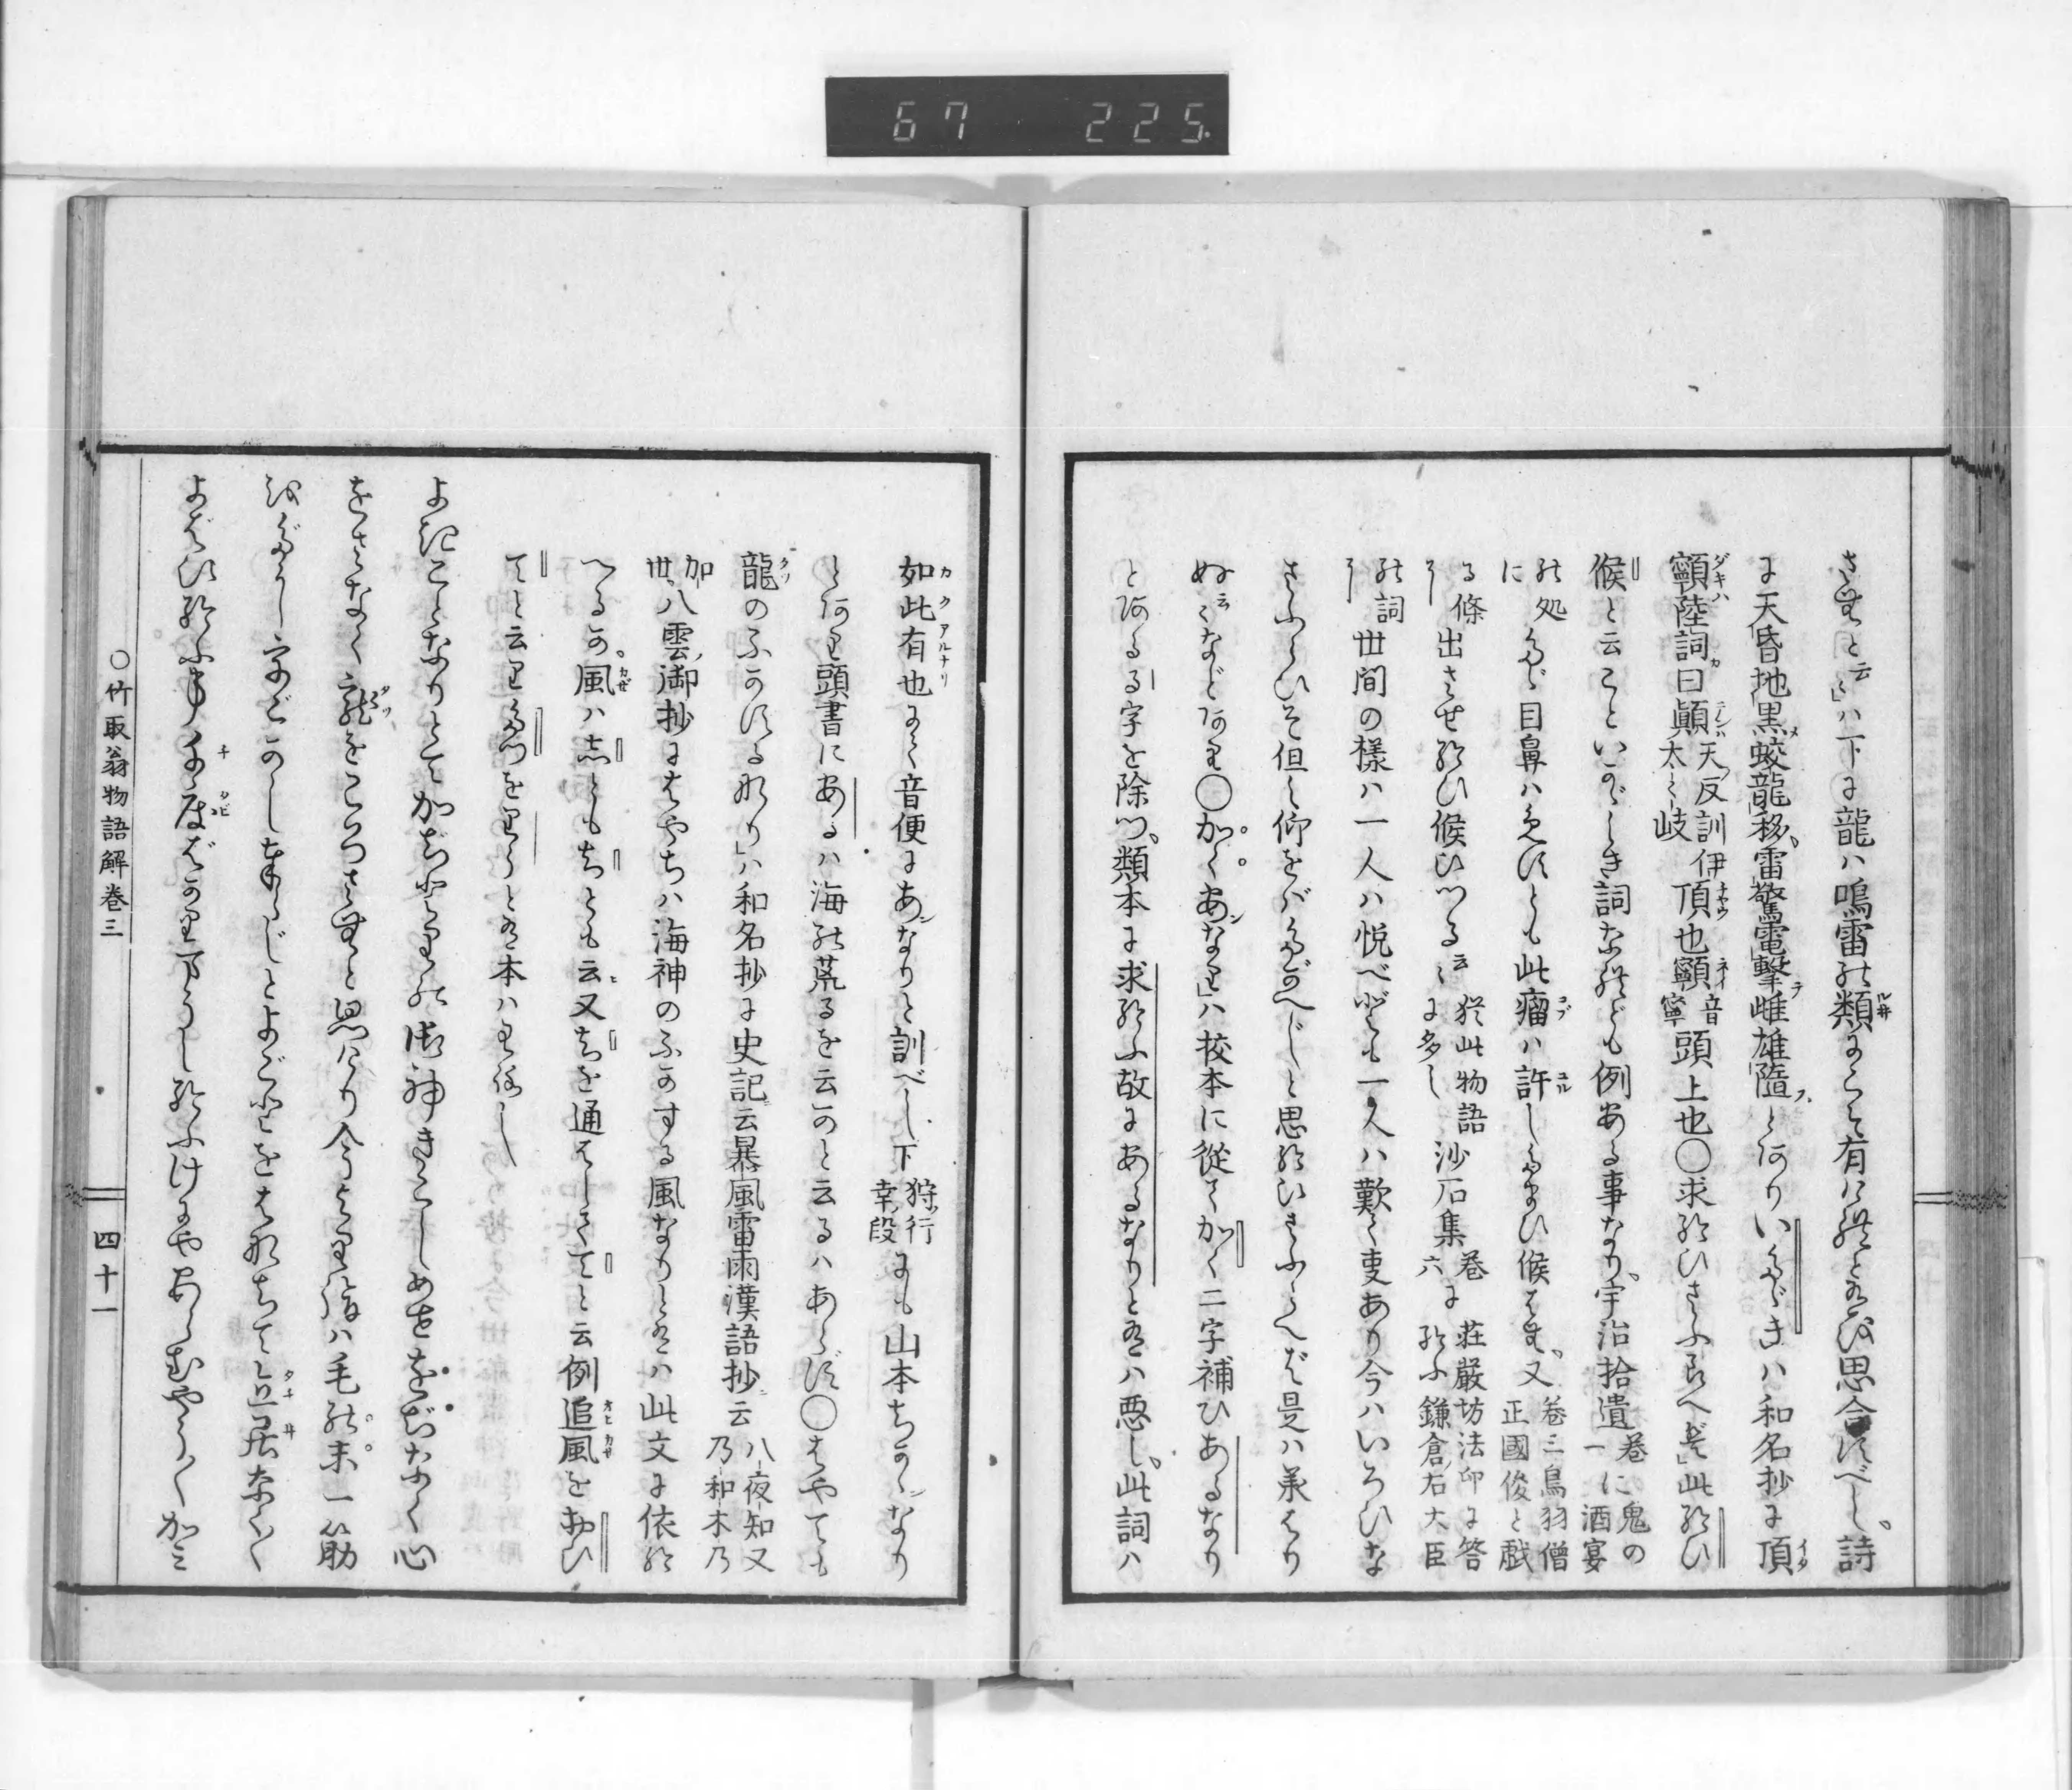 67 225.
さむと云〻ハ下に龍ハ鳴雷の類にこそ有けれと有を思合すべし、詩
に天昏地黒蛟龍移、雷驚電撃雌雄隨とあり いたゞきハ和名抄に頂
𩕳陸詞曰顚天反訓伊太〻岐頂也𩕳音寧頭上也〇求給ひさふらへど此給ひ
候と云こといかゞしき詞なれども例ある事なり、宇治拾遺巻一に鬼の酒宴
の処にたゞ目鼻ハめすとも此瘤ハ許したまひ候はむ、又巻三鳥羽僧正國俊と戯
る條出させ給ひ候ひつる云〻猶此物語に多し沙石集巻六に荘嚴坊法印に答給ふ鎌倉右大臣
の詞世间の樣ハ一人ハ悦べども一人ハ歎く事あり今ハいろひな
さふらひそ但し仰をバたがへじと思給ひさふらへば是ハ承はり
ぬ云〻などあり〇かくあなりハ挍本に從てかく二字補ひあるなり
とあるる字を除つ、類本に求給ふ故にあるなりと有ハ悪し、此詞ハ
如此有也にて音便にあンなりと訓べし、下狩行幸段にも山本ちかンなり
とあり頭書にあるハ海の荒るを云かと云るハあらず〇はやても
龍のふかする也りハ和名抄に史記云暴風雷雨漢語抄云八夜知又乃和木乃
加世八雲御抄にはやちハ海神のふかする風なりと有ハ此文に依給
へるか風ハしともちとも云又ちを通はしててと云例追風をおひ
てと云りたつをりうと有本ハわろし
よきことなりとてかぢとりの御神きこしめせをぢなく心
をさなく龍をころさむと思けり今より後ハ毛の末一筋
をだにうごかし奉らじとよごとをはなちて立居なく〳〵
よばひ給ふ事千度ばかり申し給ふけにやあらむやう〳〵かミ
〇竹取翁物語解巻三
四十一